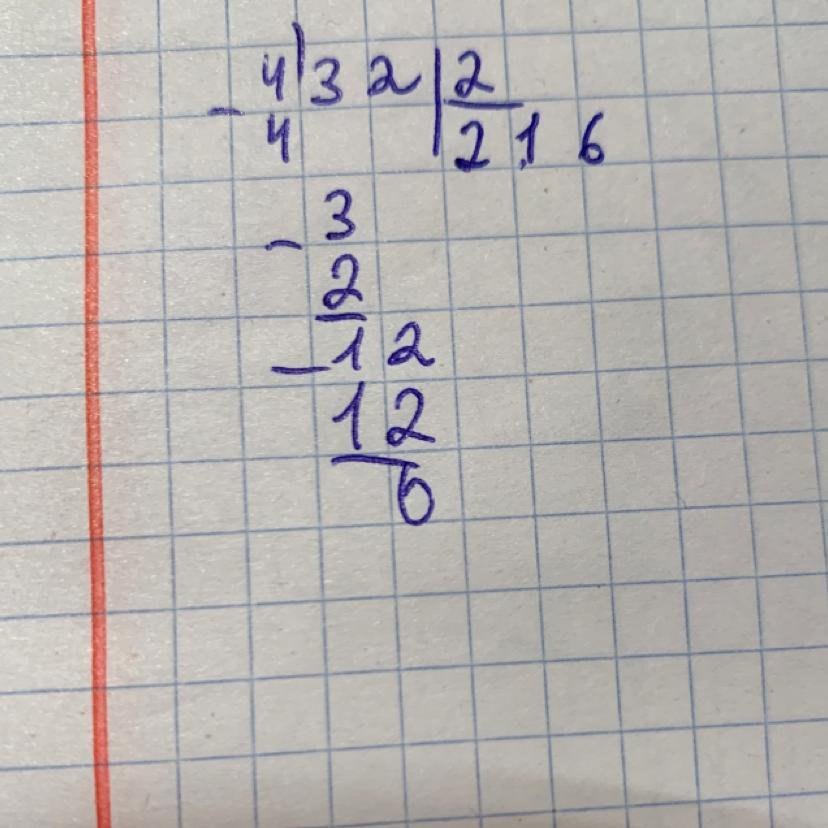 - 4) 3 2 | 2
4 | 2 1 6
- 3
2
- 1 2
1 2
0